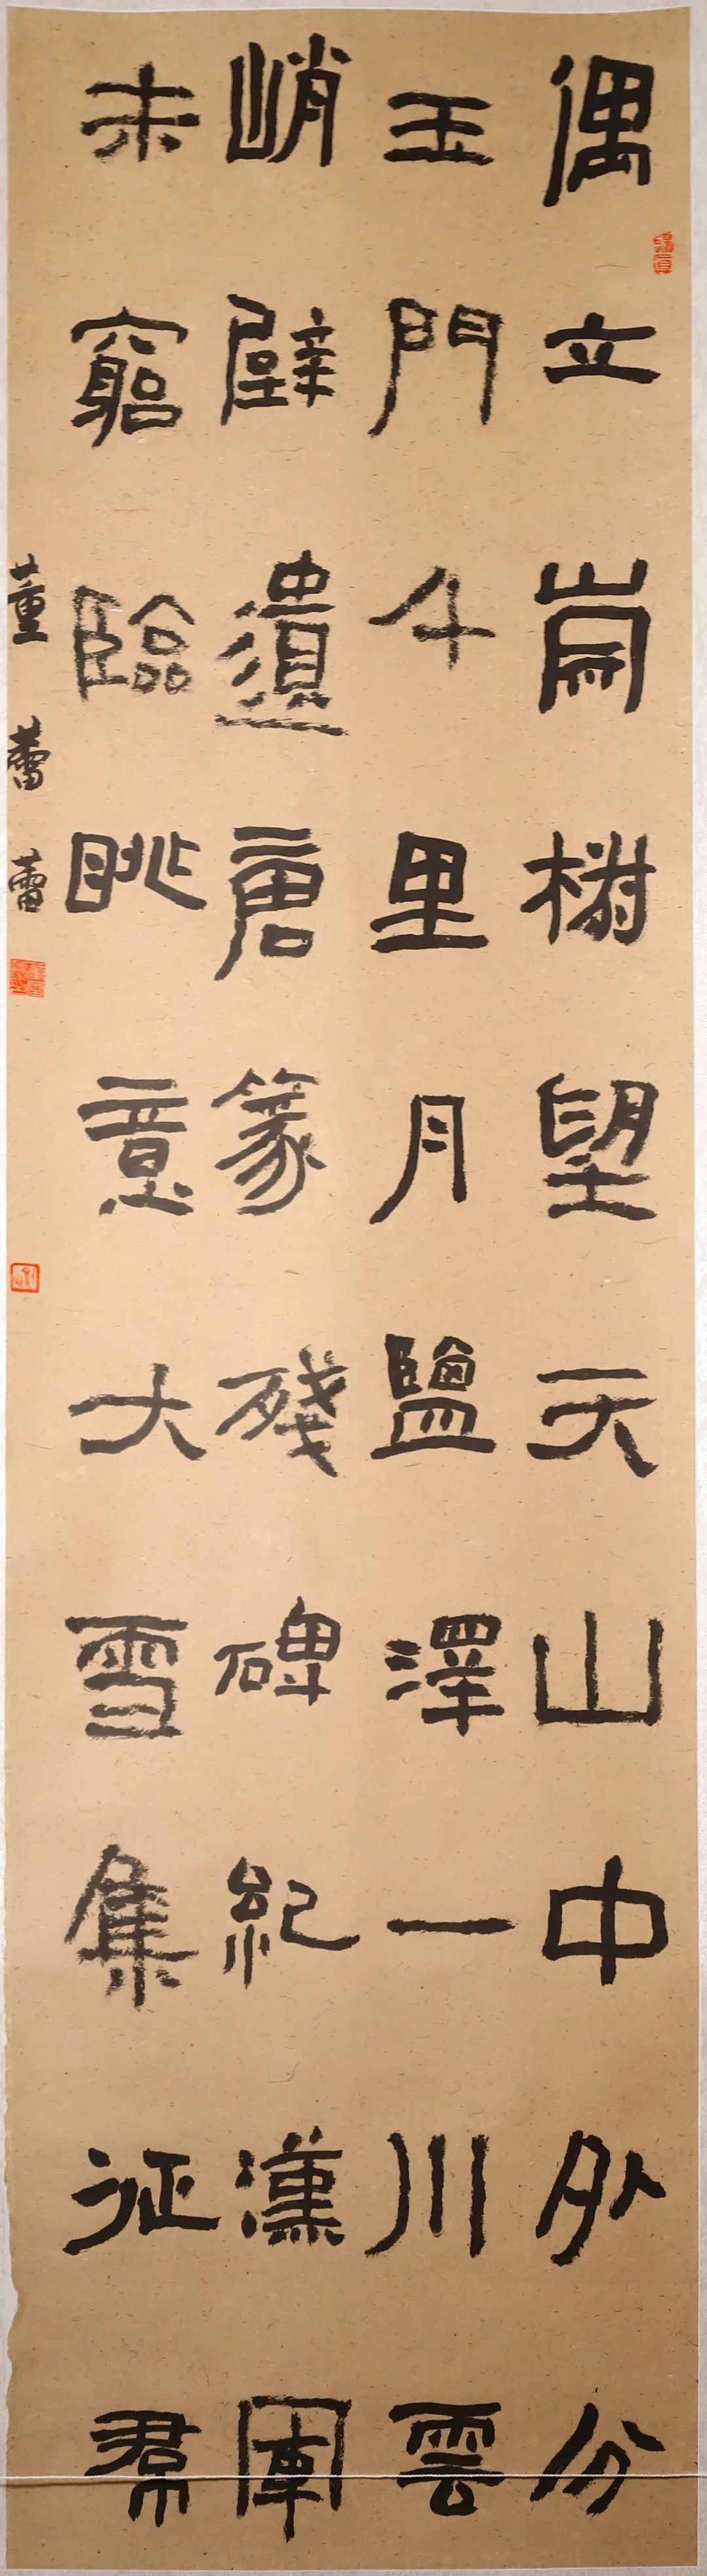 偶立崗樹望天山中外分
玉門千里月鹽澤一川雲
峭壁遺唐篆殘碑紀漢軍
未窮臨眺意大雪集征裠
董蕾蕾